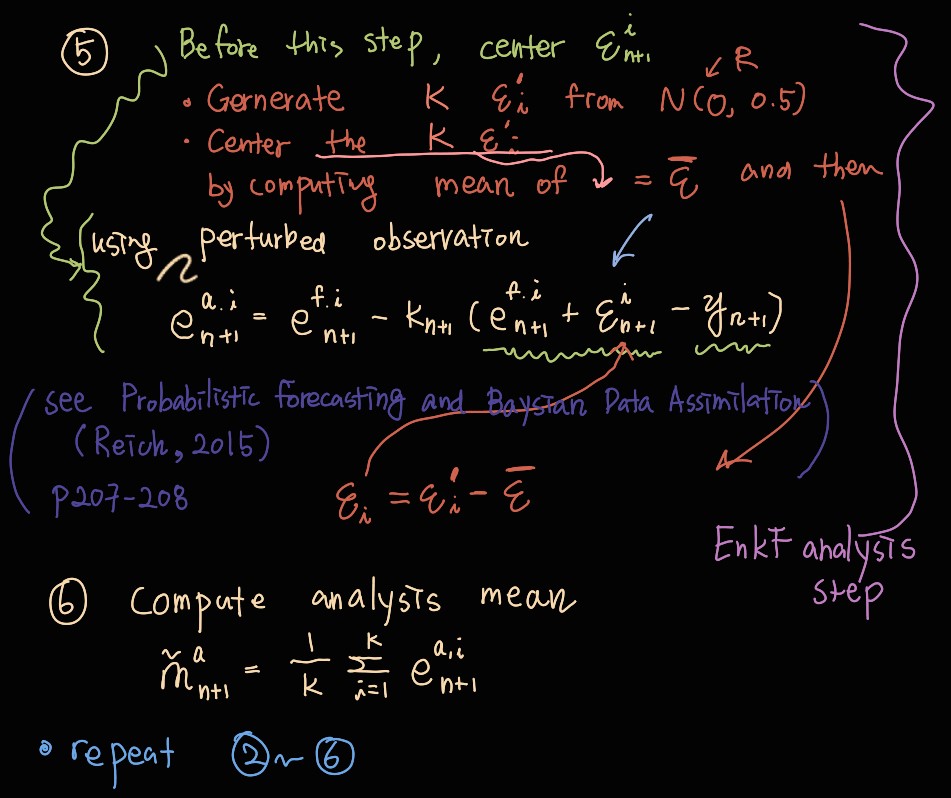 ⑤ Before this step, center ε^i_{n+1}
• Gernerate K ε'_i from N(0, 0.5) ↙ R
• Center the K ε'_i
by computing mean of ↓ = ε̄ and then
(using perturbed observation
e^{a.i}_{n+1} = e^{f.i}_{n+1} - K_{n+1} (e^{f.i}_{n+1} + ε^i_{n+1} - y_{n+1})
(see Probabilistic forecasting and Baysian Data Assimilation)
(Reich, 2015)
p207-208
ε_i = ε'_i - ε̄
EnkF analysis
step
⑥ Compute analysis mean
m̃^a_{n+1} = 1/K Σ_{i=1}^{K} e^{a,i}_{n+1}
• repeat ②~⑥